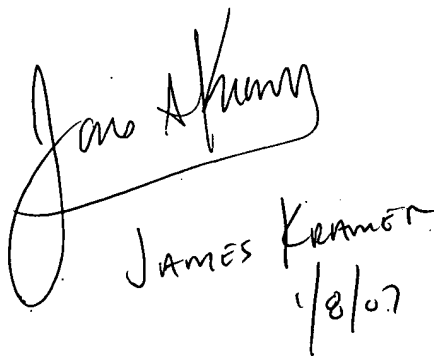 James A Kramer
JAMES KRAMER
1/8/07